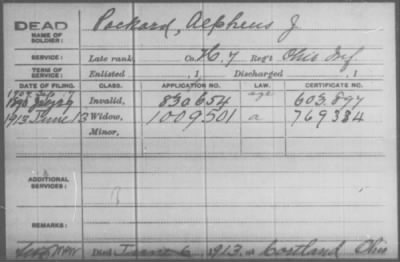 DEAD
NAME OF SOLDIER:
Packard, Alpheus J
SERVICE:
Late rank, Co. H, 7 Reg't Ohio Inf.
TERM OF SERVICE:
Enlisted , 1 Discharged , 1
DATE OF FILING. CLASS. APPLICATION NO. LAW. CERTIFICATE NO.
1890 July 29 Invalid, 830654 age 603.897
1913 June 13 Widow, 1009.501 a 769384
Minor,
ADDITIONAL SERVICES:
REMARKS:
Died June 6, 1913. at Cortland Ohio